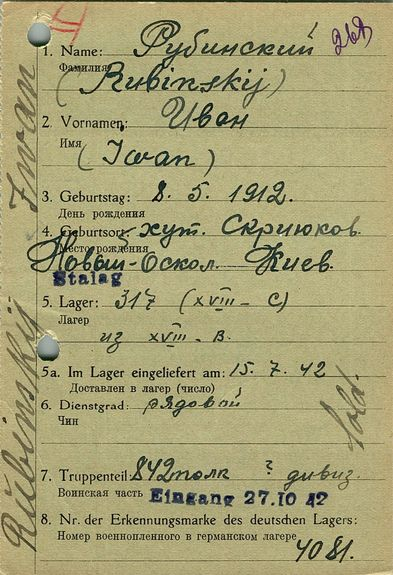 II
268
1. Name: Рубинский
Фамилия
(Rubinskij)
2. Vornamen: Иван
Имя
(Iwan)
3. Geburtstag: 8. 5. 1912.
День рождения
4. Geburtsort: хут. Скрюков
Место рождения
Новый-Оскол. Киев.
Stalag
5. Lager: 317 (XVIII - C)
Лагерь
из XVIII - B.
5a. Im Lager eingeliefert am: 15. 7. 42
Доставлен в лагерь (число)
6. Dienstgrad: рядовой
Чин
Sold.
7. Truppenteil: 842 полк ? дивиз.
Воинская часть Eingang 27.10 42
8. Nr. der Erkennungsmarke des deutschen Lagers:
Номер военнопленного в германском лагере
4081.
Rubinskij Iwan